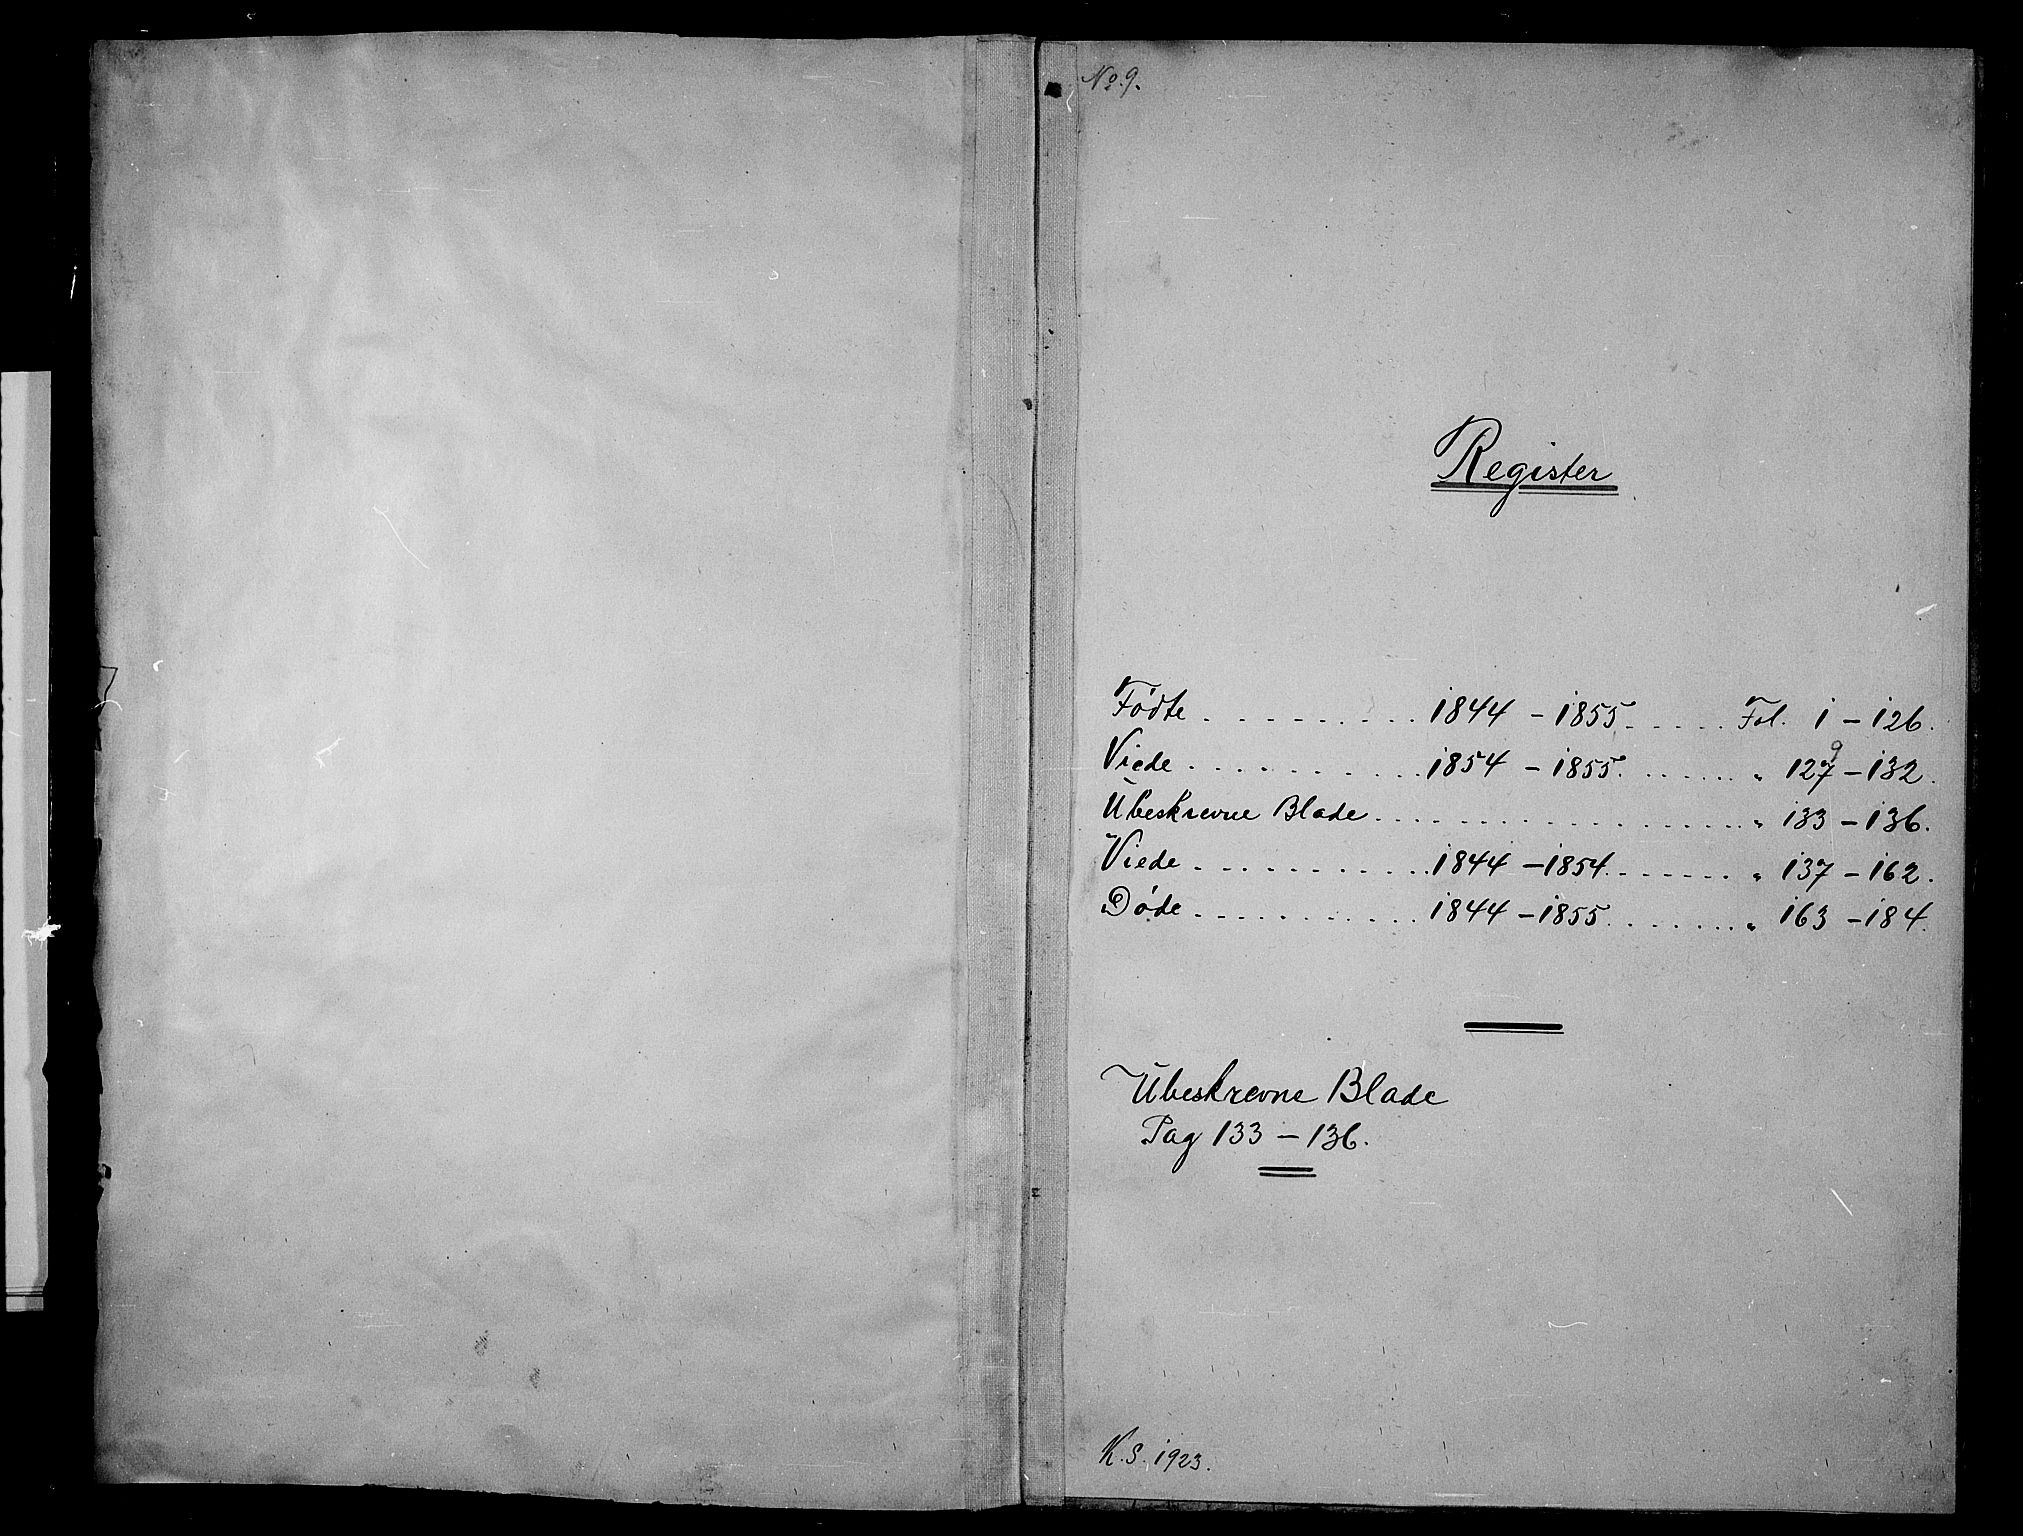 No. 9.
Register
Fødte . . . . . . . . . . 1844 - 1855 . . . . . Fol. 1 - 126.
9
Viede . . . . . . . . . . 1854 - 1855 . . . . . . „ 127 - 132.
Ubeskrevne Blade . . . . . . . . . . . . . . . . . . „ 133 - 136.
Viede . . . . . . . . . . 1844 - 1854 . . . . . . „ 137 - 162.
Døde . . . . . . . . . . 1844 - 1855 . . . . . . „ 163 - 184.
Ubeskrevne Blade
Pag 133 - 136.
K.S. 1923.